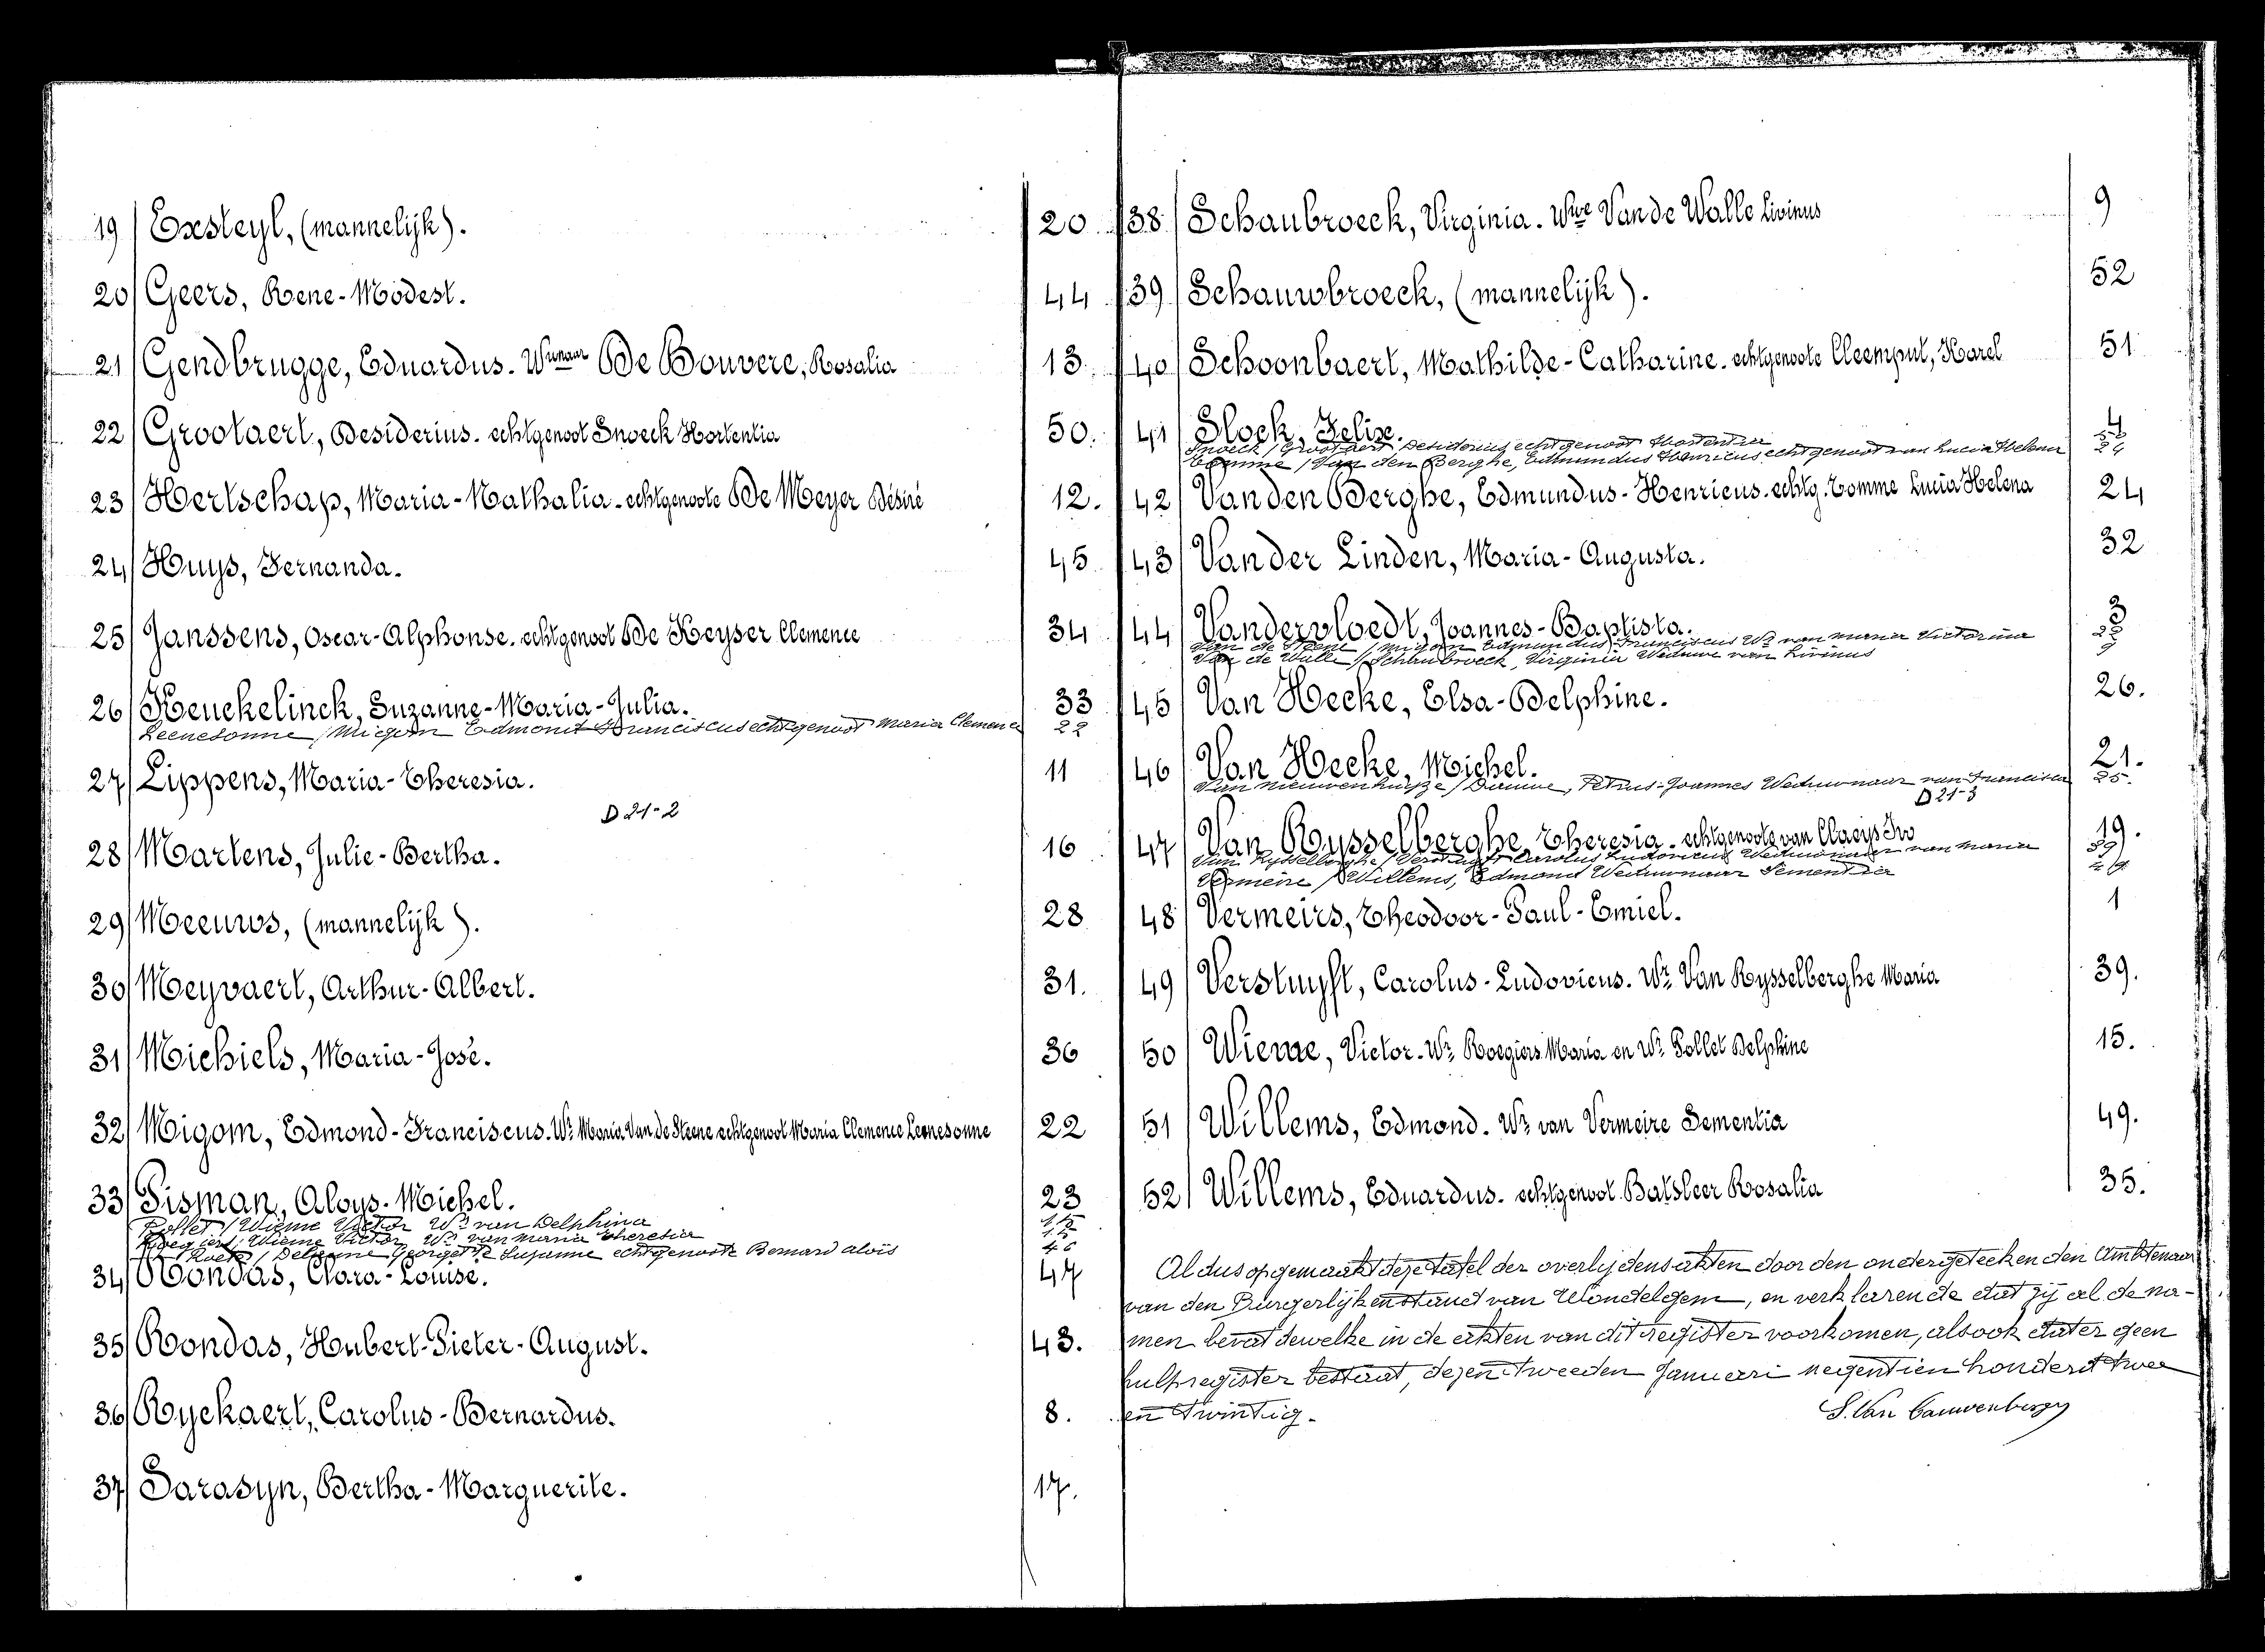 19 Exsteyl, (mannelijk). 20
20 Geers, Rene-Modest. 44
21 Gendbrugge, Eduardus. Wwnaar De Bouvere, Rosalia 13.
22 Grootaert, Desiderius. echtgenoot Snoeck Hortentia 50.
23 Hertschap, Maria-Nathalia. echtgenoote De Meyer Désiré 12.
24 Huys, Fernanda. 45
25 Janssens, Oscar-Alphonse. echtgenoot De Keyser Clemence 34
26 Keuckelinck, Suzanne-Maria-Julia. 33
Leenesonne / Migom Edmond Franciscus echtgenoot Maria Clemence 22
27 Lippens, Maria-Theresia. 11
D 21-2
28 Martens, Julie-Bertha. 16
29 Meeuws, (mannelijk). 28
30 Meyvaert, Arthur-Albert. 31.
31 Michiels, Maria-José. 36
32 Migom, Edmond-Franciscus. Wr Maria Van de Steene echtgenoot Maria Clemence Leenesonne 22
33 Pisman, Aloys-Michel. 23
Pollet / Wieme Victor Wr van Delphina 15
Roegiers / Wieme Victor, Wr van Maria Theresia 15
Georgette Suzanne echtgenoote Bernard Aloïs 46
34 Rondas, Clara-Louise. 47
35 Rondas, Hubert-Pieter-August. 43.
36 Ryckaert, Carolus-Bernardus. 8.
37 Sarasyn, Bertha-Marguerite. 17.
38 Schaubroeck, Virginia. Wwe Van de Walle Livinus 9
39 Schauwbroeck, (mannelijk). 52
40 Schoonbaert, Mathilde-Catharine. echtgenoote Cleemput, Karel 51
41 Slock, Felix. 4
Snoeck / Grootaert Desiderius echtgenoot Hortentia 50
Comme / Van den Berghe, Edmundus Henricus echtgenoot van Lucia Helena 24
42 Van den Berghe, Edmundus-Henricus. echtg. Comme Lucia Helena 24
43 Van der Linden, Maria-Augusta. 32
44 Vandervloedt, Joannes-Baptista. 3
Van de Steene / Migom Edmundus Franciscus Wr van Maria Victorina 22
Van de Walle / Schaubroeck, Virginia Weduwe van Livinus 9
45 Van Hecke, Elsa-Delphine. 26.
46 Van Hecke, Michel. 21.
Van Nieuwenhuyze / Petrus-Joannes Weduwnaar van Francisca 25.
D 21-3
47 Van Rysselberghe, Theresia. echtgenoote van Claeys Ivo 19.
Van Rysselberghe / Verstuyft Carolus Ludovicus Weduwnaar van Maria 39
Vermeire / Willems, Edmond Weduwnaar Sementia 49
48 Vermeirs, Theodoor-Paul-Emiel. 1
49 Verstuyft, Carolus-Ludovicus. Wr Van Rysselberghe Maria 39.
50 Wieme, Victor. Wr Roegiers Maria en Wr Pollet Delphine 15.
51 Willems, Edmond. Wr van Vermeire Sementia 49.
52 Willems, Eduardus. echtgenoot Batsleer Rosalia 35.
Aldus opgemaakt deze tafel der overlijdensakten door den ondergeteekenden Ambtenaar
van den Burgerlijkenstand van Wondelgem, en verklarende dat zij al de na-
men bevat dewelke in de akten van dit register voorkomen, alsook dat er geen
hulpregister bestaat, dezen tweeden Januari negentien honderd twee
en twintig.
S. Van Cauwenberge